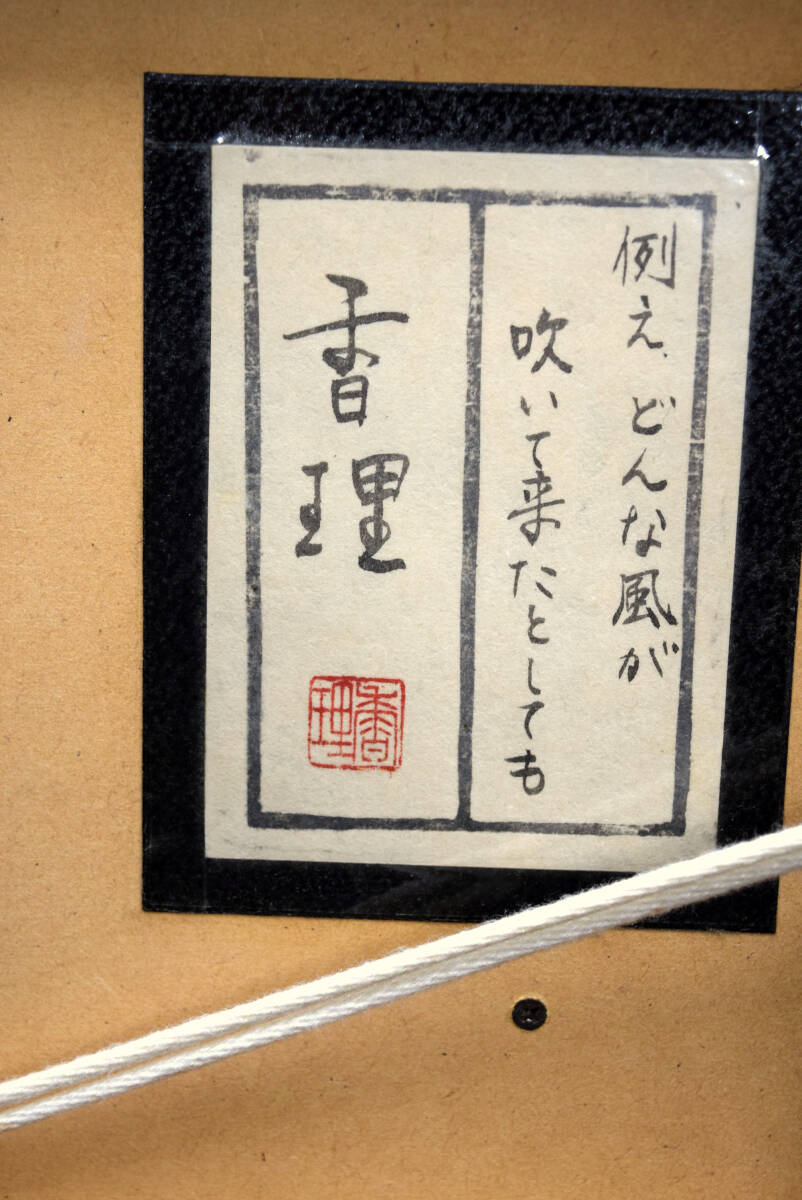 例え、どんな風が
吹いて来たとしても
香理
香理